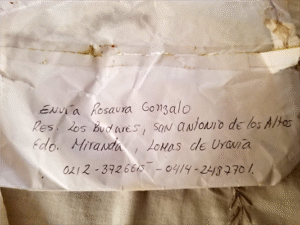 Envía Rosaura Gonzalo
Res. Los Budares, San Antonio de los Altos
Edo. Miranda, Lomas de Urquía
0212-3726615 - 0414-2487701.